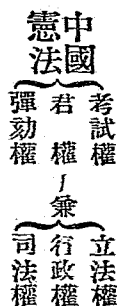 中國
憲法
考試權
君權兼
彈劾權
立法權
行政權
司法權